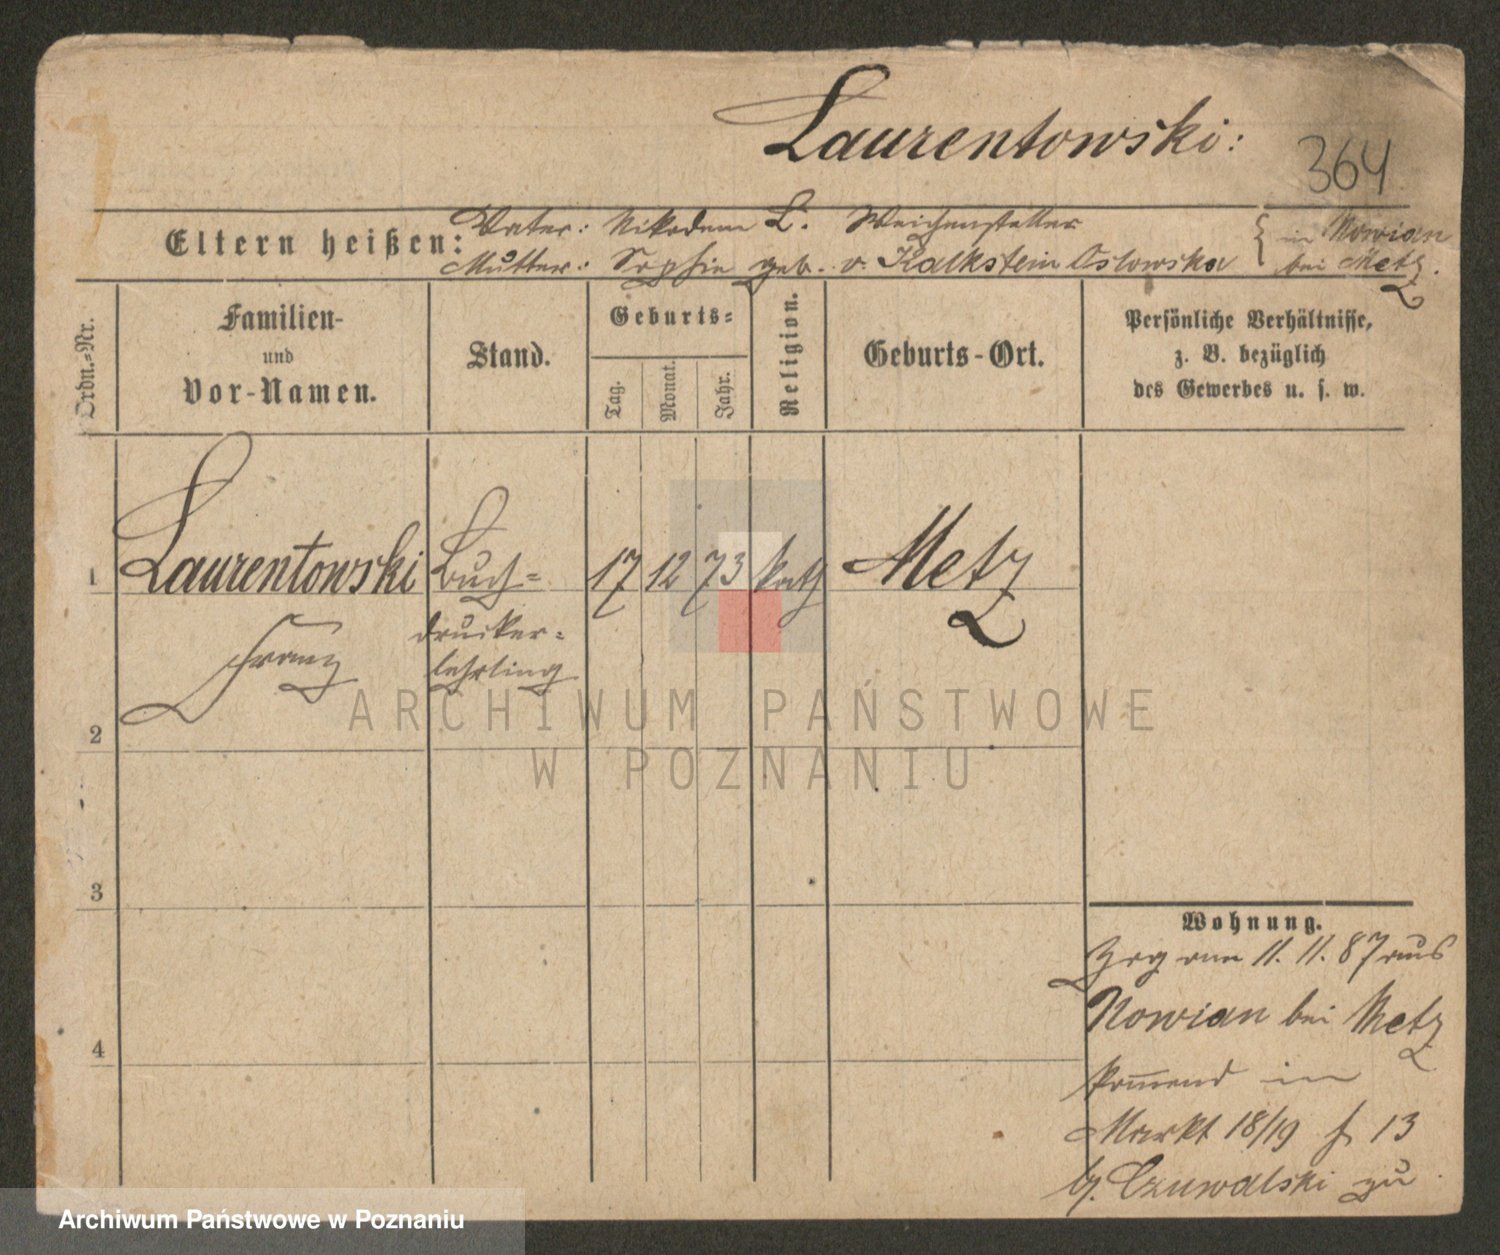 Laurentowski:
364
Eltern heißen:
Vater: Nikodem L. Weichensteller
Mutter: Sophie geb. v. Kalkstein Oslowska
in Nowian
bei Metz.
Ordn.=Nr.
Familien-
und
Vor-Namen.
Stand.
Geburts=
Tag.
Monat.
Jahr.
Religion.
Geburts-Ort.
Persönliche Verhältnisse,
z. B. bezüglich
des Gewerbes u. s. w.
1 Laurentowski Buch= 17 12 73 kath Metz
Franz
drucker=
lehrling
2
3
4
Wohnung.
Zog am 11. 11. 87 aus
Nowian bei Metz
kom̅end in
Markt 18/19 13
b. Czuwalski zu
ARCHIWUM PAŃSTWOWE
W POZNANIU
Archiwum Państwowe w Poznaniu